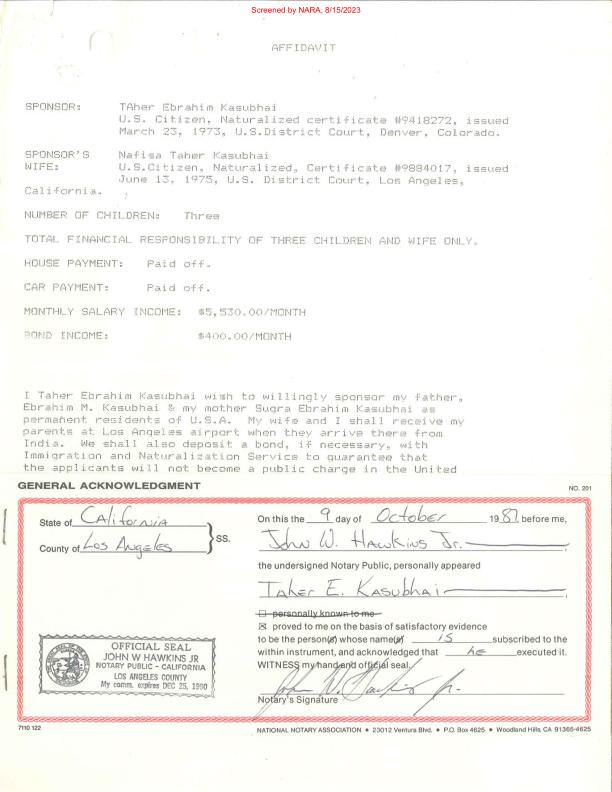 Screened by NARA, 8/15/2023
AFFIDAVIT
SPONSOR: TAher Ebrahim Kasubhai
U.S. Citizen, Naturalized certificate #9418272, issued
March 23, 1973, U.S.District Court, Denver, Colorado.
SPONSOR'S Nafisa Taher Kasubhai
WIFE: U.S.Citizen, Naturalized, Certificate #9884017, issued
June 13, 1975, U.S. District Court, Los Angeles,
California.
NUMBER OF CHILDREN: Three
TOTAL FINANCIAL RESPONSIBILITY OF THREE CHILDREN AND WIFE ONLY.
HOUSE PAYMENT: Paid off.
CAR PAYMENT: Paid off.
MONTHLY SALARY INCOME: $5,530.00/MONTH
BOND INCOME: $400.00/MONTH
I Taher Ebrahim Kasubhai wish to willingly sponsor my father,
Ebrahim M. Kasubhai & my mother Sugra Ebrahim Kasubhai as
permanent residents of U.S.A. My wife and I shall receive my
parents at Los Angeles airport when they arrive there from
India. We shall also deposit a bond, if necessary, with
Immigration and Naturalization Service to guarantee that
the applicants will not become a public charge in the United
GENERAL ACKNOWLEDGMENT
NO. 201
State of California
County of Los Angeles
SS.
On this the 9 day of October 1987, before me,
John W. Hawkins Jr.
the undersigned Notary Public, personally appeared
Taher E. Kasubhai
☐ personally known to me
☒ proved to me on the basis of satisfactory evidence
to be the person(s) whose name(s) is subscribed to the
within instrument, and acknowledged that he executed it.
WITNESS my hand and official seal.
John W. Hawkins Jr.
Notary's Signature
OFFICIAL SEAL
JOHN W HAWKINS JR
NOTARY PUBLIC - CALIFORNIA
LOS ANGELES COUNTY
My comm. expires DEC 25, 1990
7110 122
NATIONAL NOTARY ASSOCIATION • 23012 Ventura Blvd. • P.O. Box 4625 • Woodland Hills, CA 91365-4625